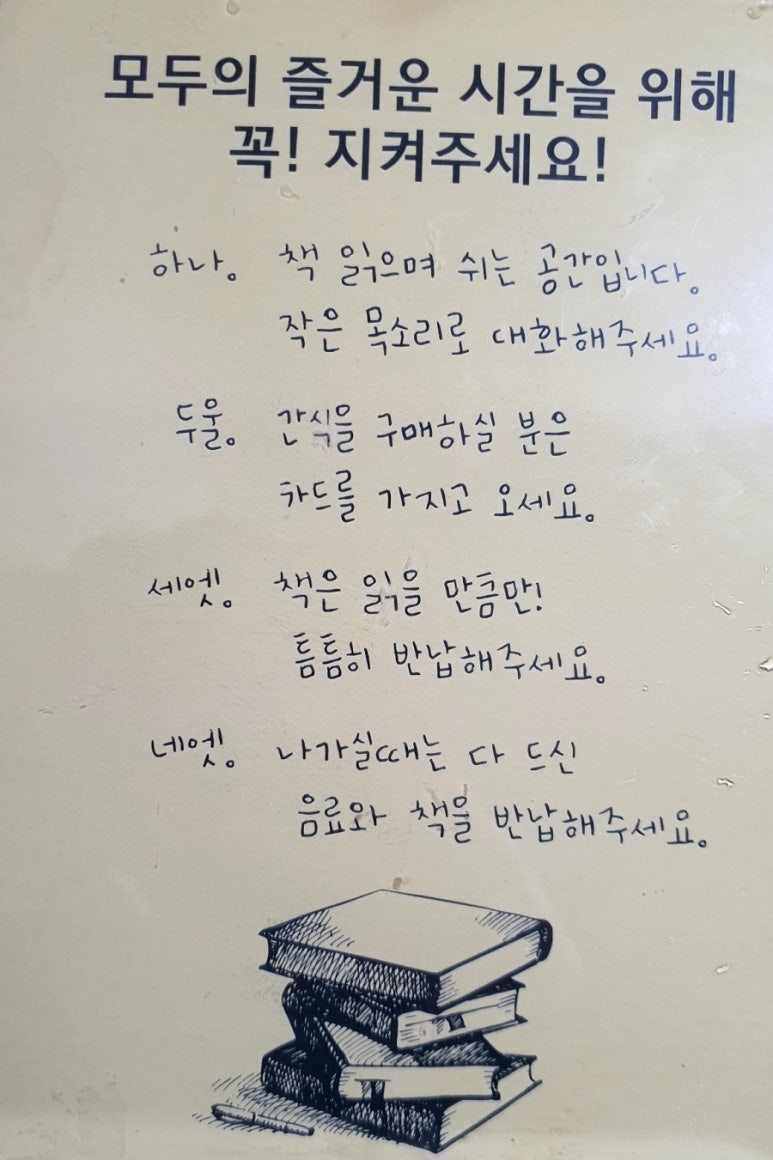 모두의 즐거운 시간을 위해
꼭! 지켜주세요!
하나。 책 읽으며 쉬는 공간입니다。
작은 목소리로 대화해주세요。
두울。 간식을 구매하실 분은
카드를 가지고 오세요。
세엣。 책은 읽을 만큼만!
틈틈히 반납해주세요。
네엣。 나가실때는 다 드신
음료와 책을 반납해주세요。